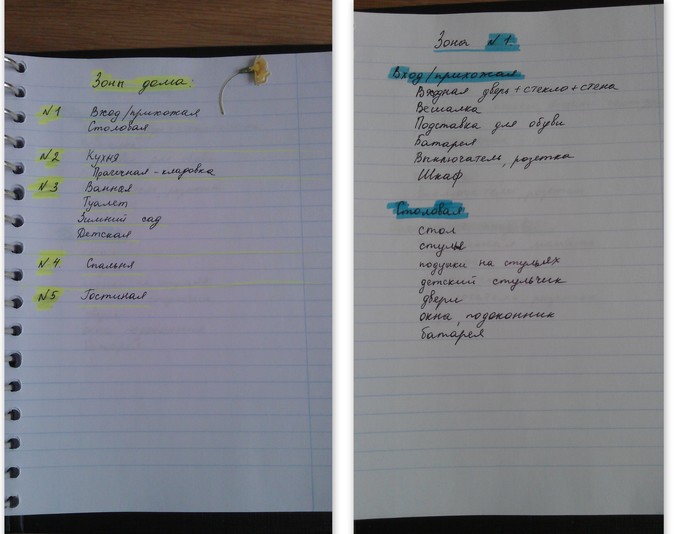 Зоны дома:
N1 Вход/прихожая
Столовая
N2 Кухня
Прачечная-кладовка
N3 Ванная
Туалет
Зимний сад
Детская
N4. Спальня
N5 Гостиная
Зона N1.
Вход/прихожая
Входная дверь+стекло+стена
Вешалка
Подставка для обуви
Батарея
Выключатель, розетка
Шкаф
Столовая
стол
стулья
подушки на стульях
детский стульчик
двери
окна, подоконник
батарея